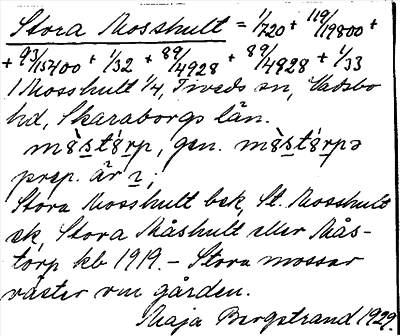 Stora Mosshult = 1/720 + 119/19800 +
+ 93/15400 + 1/32 + 89/4928 + 89/4928 + 1/33
1 Mosshult 1/4, Tiveds sn, Vadsbo
hd, Skaraborgs län.
prep. är
Stora Mosshult bsk, St. Mosshult
sk, Stora Måshult eller Mås-
torp kb 1919. - Stora mossar
väster om gården.
Maja Bergstrand 1929.